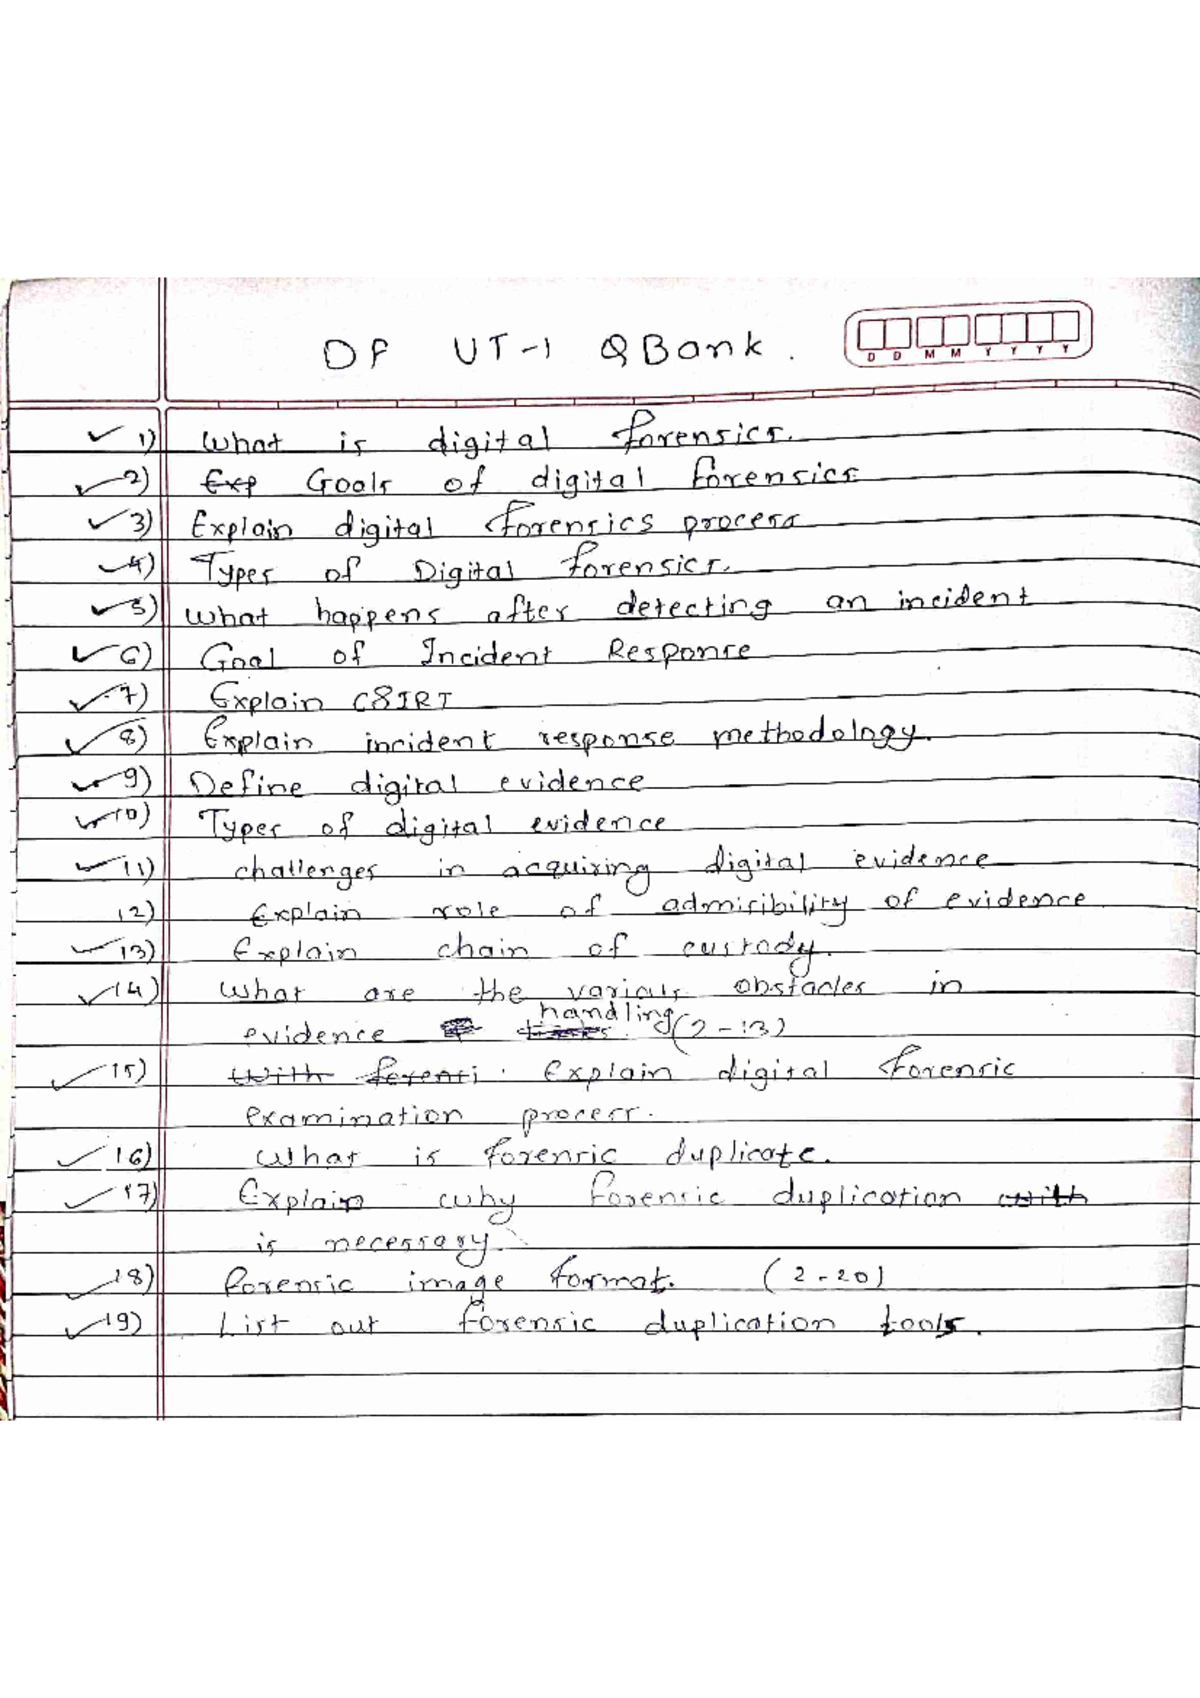 DF UT-1 QBank.
D D M M Y Y Y Y
1) What is digital forensics.
2) Exp Goals of digital forensics
3) Explain digital forensics process
4) Types of Digital forensics.
5) What happens after detecting an incident
6) Goal of Incident Response
7) Explain CSIRT
8) Explain incident response methodology.
9) Define digital evidence
10) Types of digital evidence
11) challenges in acquiring digital evidence
12) Explain role of admisibility of evidence
13) Explain chain of custody.
14) What are the various obstacles in
evidence handling (2-13)
15) With forensi. Explain digital forensic
examination process.
16) What is forensic duplicate.
17) Explain why forensic duplication with
is necessary.
18) forensic image format. (2-20)
19) List out forensic duplication tools.